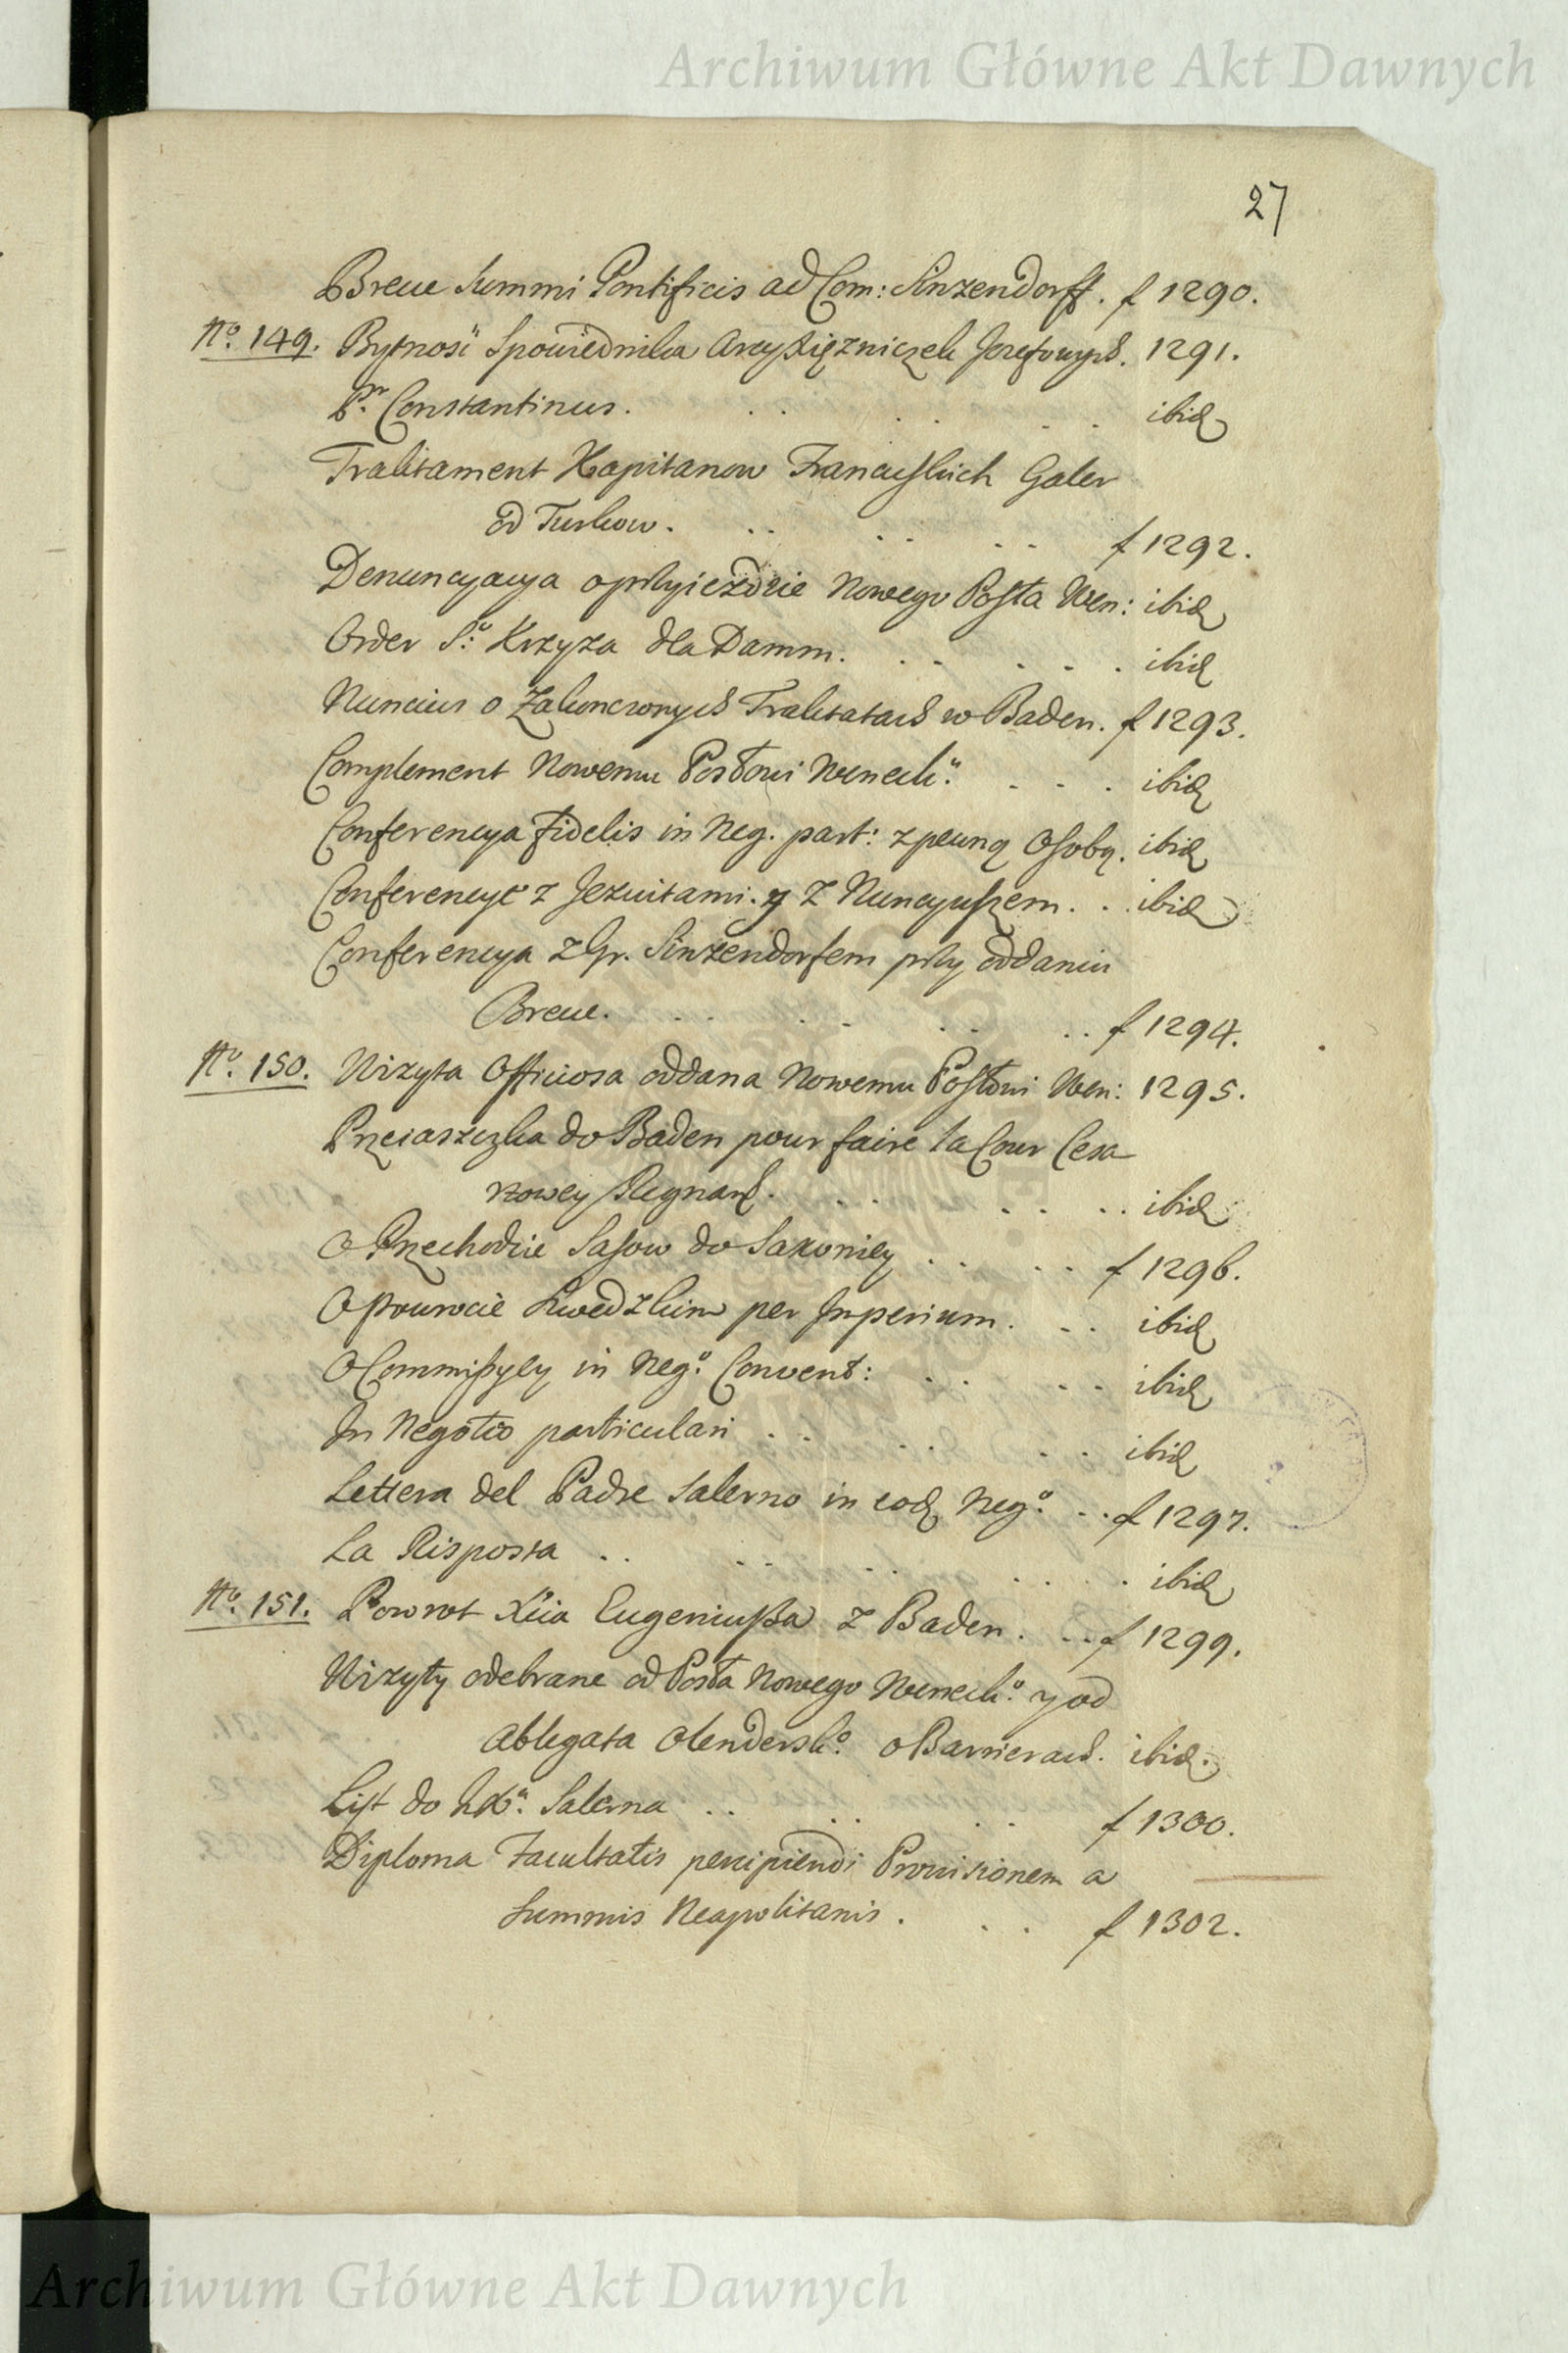 Archiwum Główne Akt Dawnych
27
Breue Summi Pontificis ad Com: Sinzendorff. f 1290.
No. 149. Bytnosć Spowiednika Arcyxięzniczek Jozefowych. 1291.
Pr. Constantinus. ibid
Traktament Kapitanow Francuskich Galer
od Turkow. f 1292.
Denuncyacya o przyiezdzie Nowego Posła Wen: ibid
Order S.o Krzyza dla Damm. ibid
Nuncius o Zakonczonych Traktatach w Baden. f 1293.
Complement Nowemu Posłowi Weneck.u ibid
Conferencya fidelis in Neg. part: z pewną Osobą. ibid
Conferencye z Jezuitami. y z Nuncyuszem. ibid
Conferencya z Gr. Sinzendorfem przy oddaniu
Breue. f 1294.
No. 150. Wizyta Officiosa oddana Nowemu Posłowi Wen: 1295.
Przeiaszczka do Baden pour faire la Cour Cesa
rzowey Regnant. ibid
O Przechodzie Sasow do Saxoniey f 1296.
O powrocie Szwedzkim per Imperium. ibid
O Commissyey in Neg.o Convent: ibid
In Negotio particulari ibid
Lettera del Padre Salerno in eod Neg.o f 1297.
La Risposta ibid
No. 151. Powrot Xcia Eugeniusza z Baden. f 1299.
Wizyty odebrane od Posła Nowego Weneck.o y od
Ablegata Olendersk.o o Barrierach. ibid.
List do Salerna f 1300.
Diploma Facultatis percipiendi Prouisionem a
Summis Neapolitanis. f 1302.
Archiwum Główne Akt Dawnych